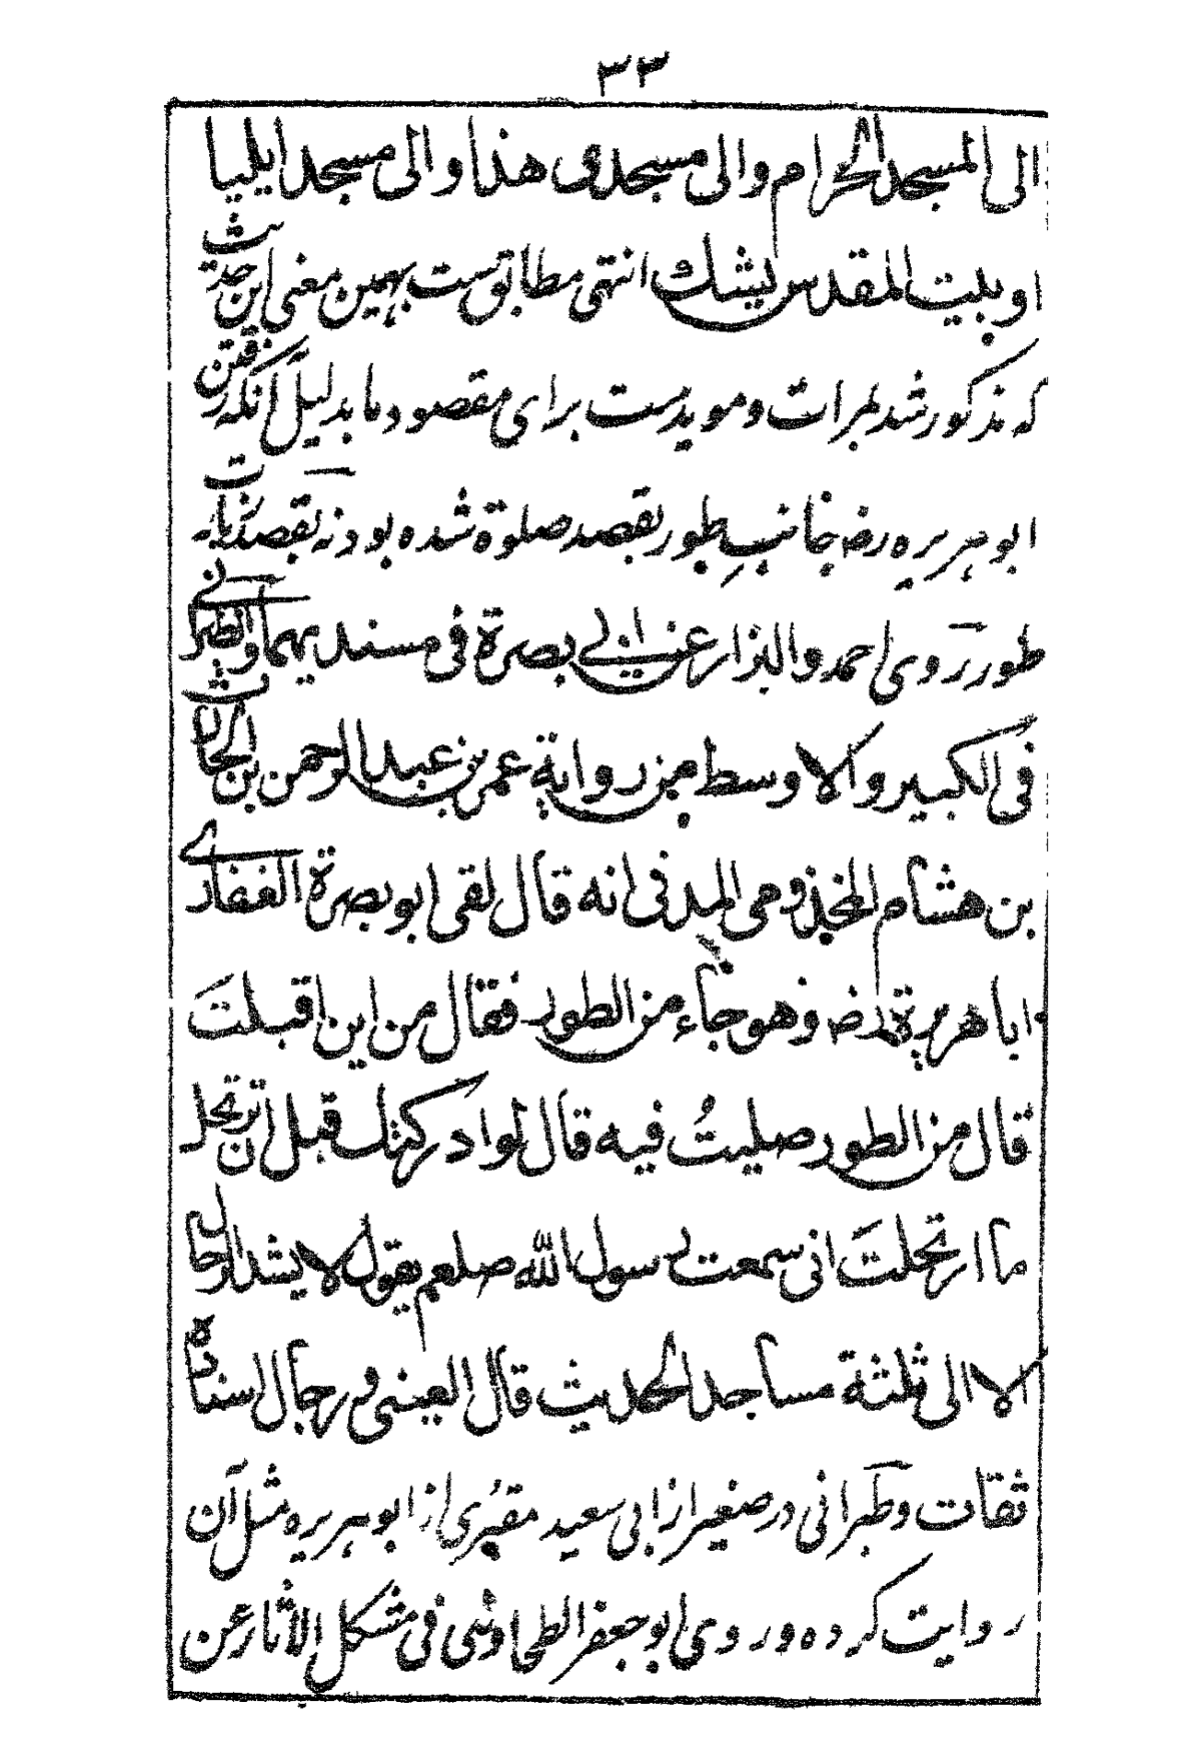 ٣٣
الى المسجد الحرام والى مسجدى هذا والى مسجد ايليا
او بيت المقدس يشك انتهى مطابق ست بهمين معنى اين حديث
كه مذكور شد بمرات و مويدست براى مقصود ما بدليل آنكه رفتن
ابو هريره رضه جانب طور بقصد صلوة شده بود نه بقصد زيارت
طور روى احمد والبزار عن ابى بصرة فى مسنديهما والطبرانى
فى الكبير والاوسط من رواية عمر بن عبد الرحمن بن الحارث
بن هشام المخذومى المدنى انه قال لقى ابو بصرة الغفارى
ابا هريرة رضه وهو جاء من الطور فقال من اين اقبلتَ
قال من الطور صليتُ فيه قال لو ادركتك قبل ان ترتحل
ما ارتحلتَ انى سمعت رسول الله صلعم يقول لا يشد الرحال
الا الى ثلثة مساجد الحديث قال العينى و رجال اسناده
ثقات و طبرانى در صغير از ابى سعيد مقبرى از ابو هريره مثل آن
روايت كرده و روى ابو جعفر الطحاوى فى مشكل الاثار عن